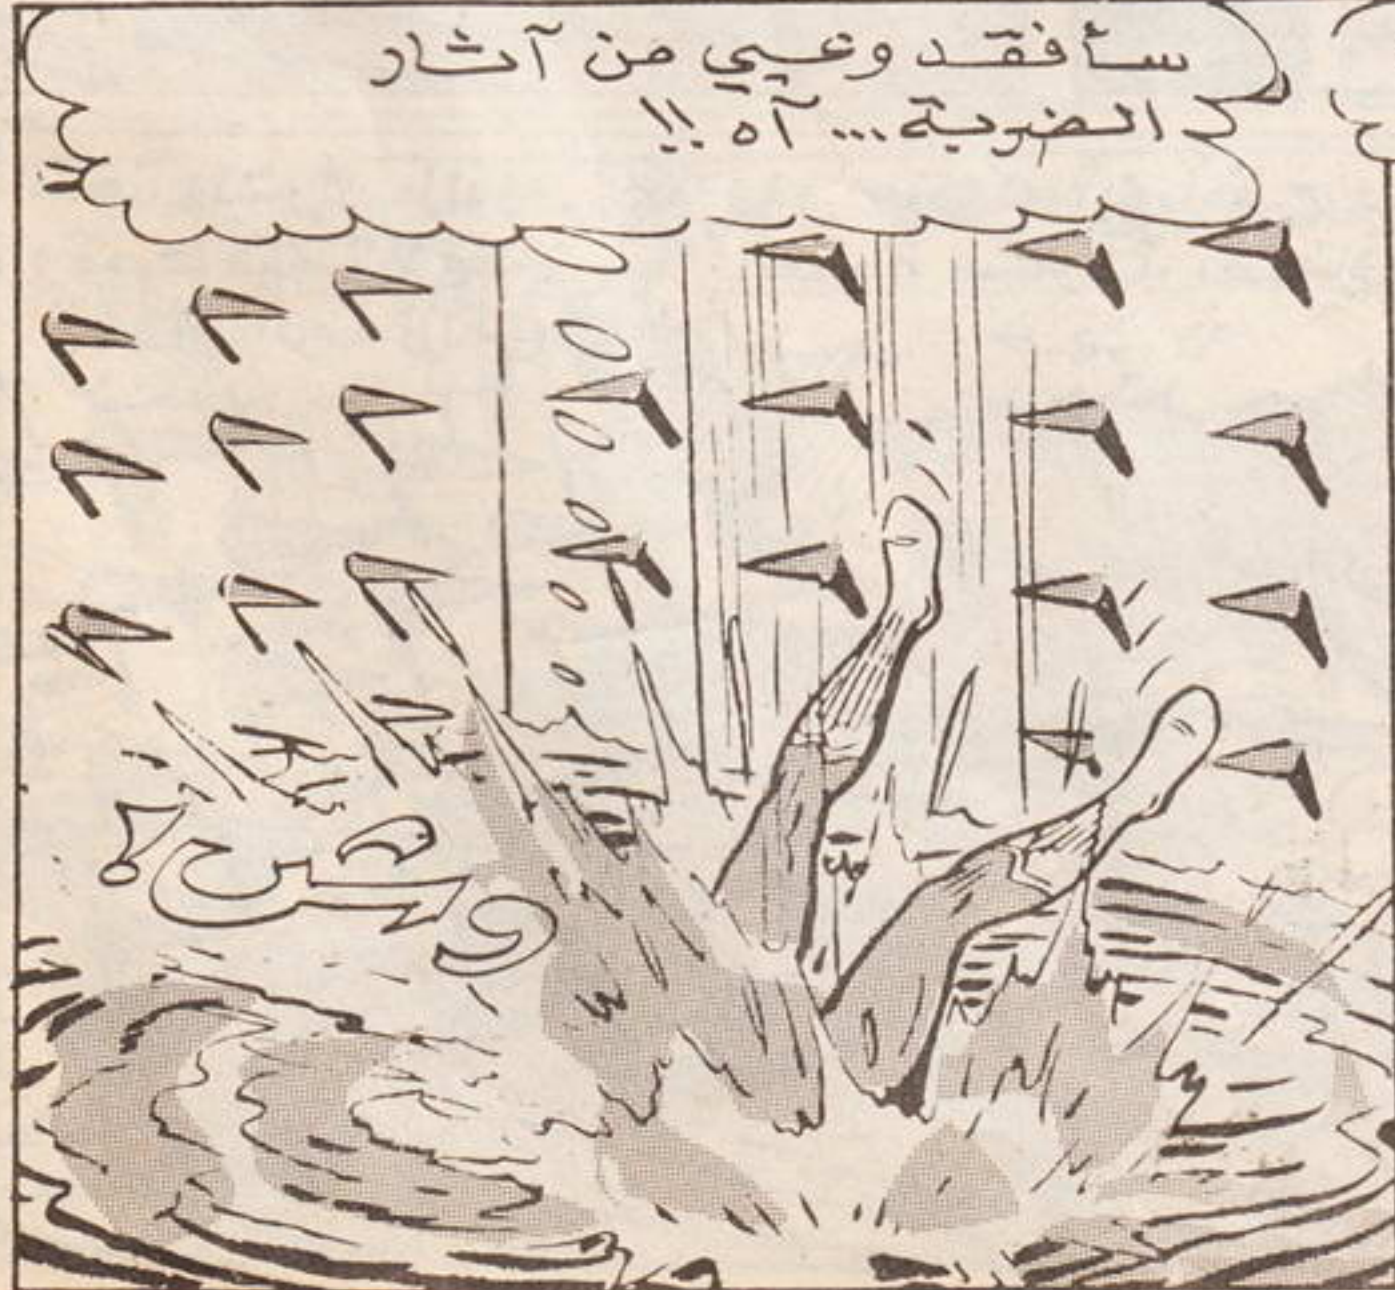 سأفقد وعيي من آثار
الضربة... آه !!
وش!